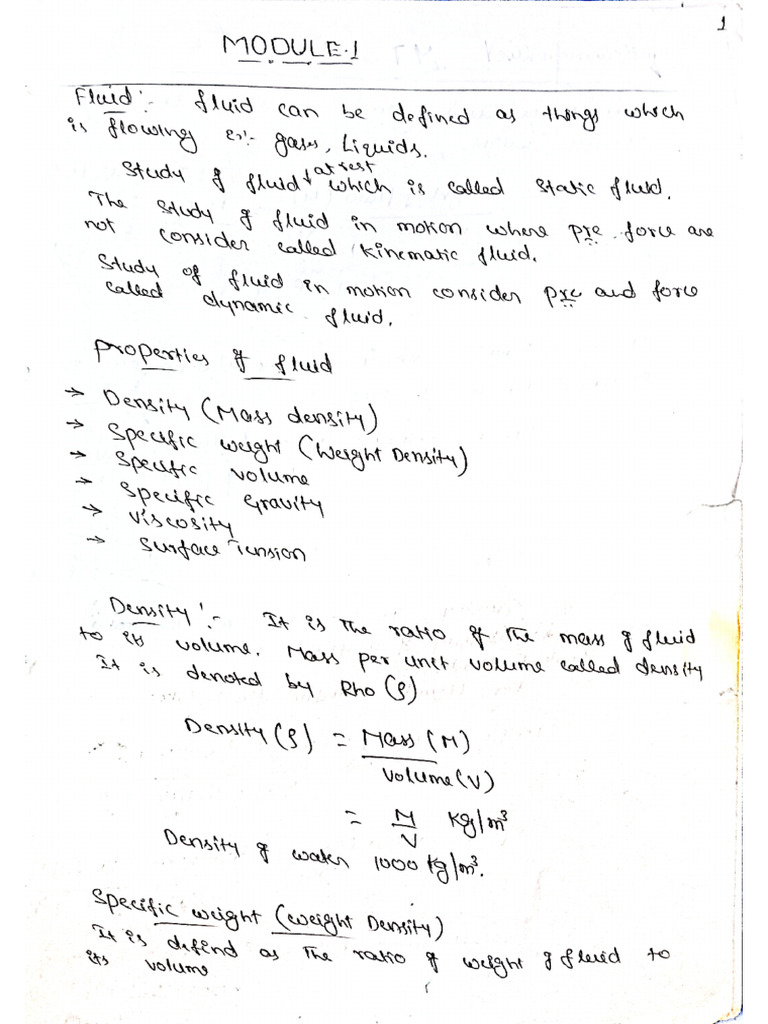 1
MODULE-1
Fluid :- fluid can be defined as things which
is flowing ex:- gases, Liquids.
Study of fluid at rest which is called static fluid.
The study of fluid in motion where pre force are
not consider called kinematic fluid.
Study of fluid in motion consider pre and force
called dynamic fluid.
Properties of fluid
→ Density (Mass density)
→ Specific weight (Weight Density)
→ Specific volume
→ Specific Gravity
→ Viscosity
→ Surface Tension
Density :- It is the ratio of the mass of fluid
to its volume. Mass per unit volume called density
It is denoted by Rho (ρ)
Density (ρ) = Mass (M)
Volume (V)
= M/V Kg/m³
Density of water 1000 Kg/m³.
Specific weight (weight Density)
It is defind as the ratio of weight of fluid to
its volume